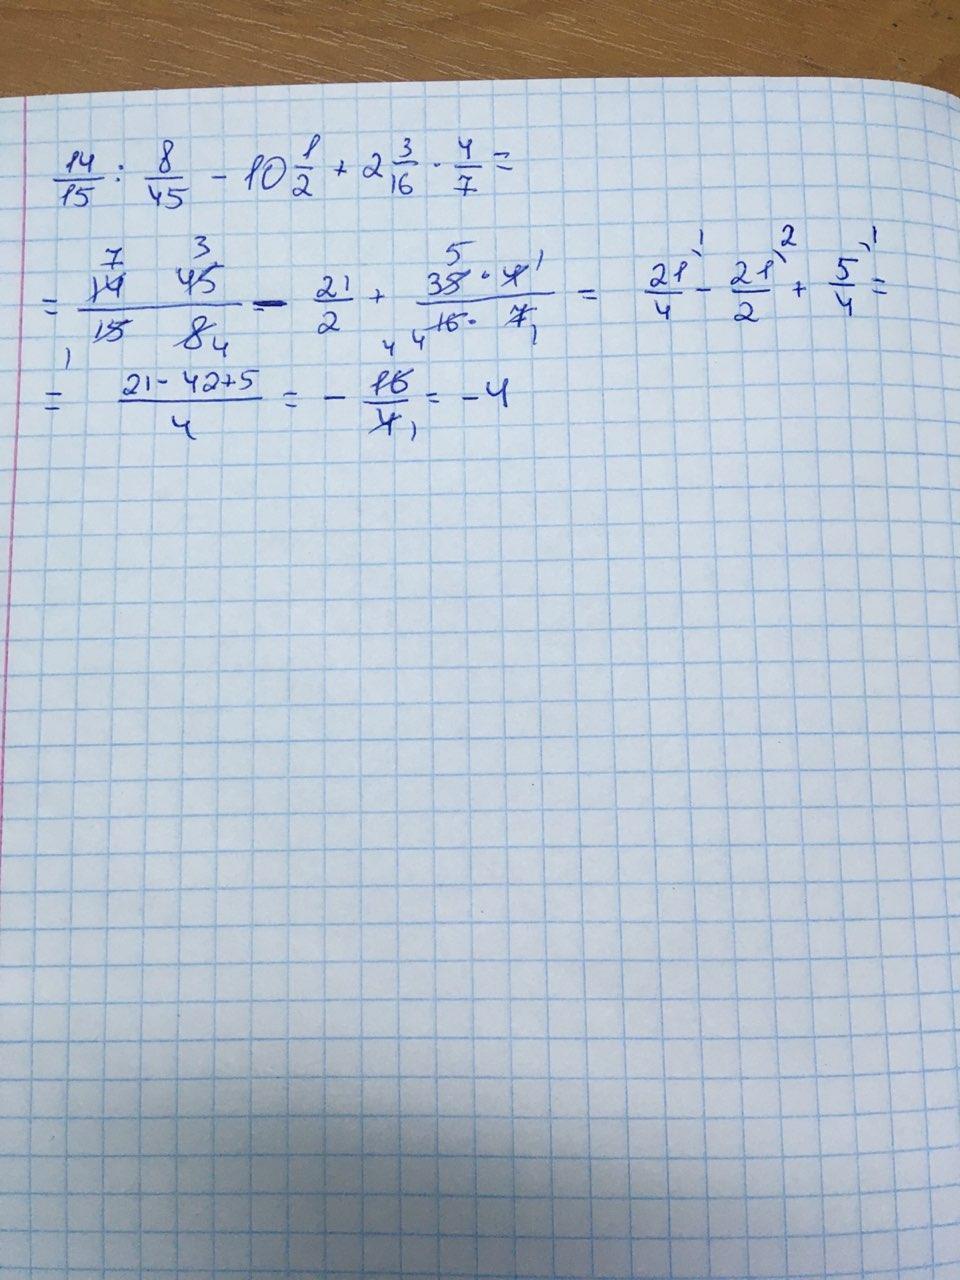 14/15 : 8/45 - 10 1/2 + 2 3/16 · 4/7 =
= 14 7 45 3 / 15 1 8 4 - 21/2 + 35 5 · 4 1 / 16 4 · 7 1 = 21/4 \1 - 21/2 \2 + 5/4 \1 =
= 21 - 42 + 5 / 4 = - 16 / 4 1 = - 4